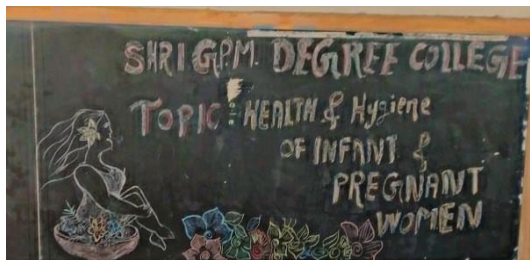 SHRI G.P.M. DEGREE COLLEGE
TOPIC: HEALTH & Hygiene
OF INFANT &
PREGNANT
WOMEN